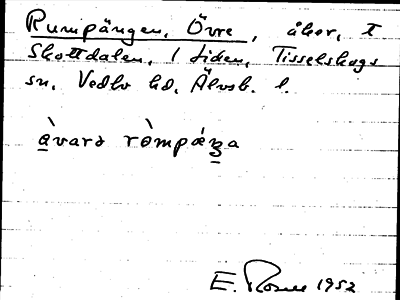 Rumpängen, Övre, åker, t
Skottdalen, 1 tiden, Tisselskogs
sn, Vedbo hd, Älvsb. l.
àvarə ròmpæŋa
E. Rosell 1952